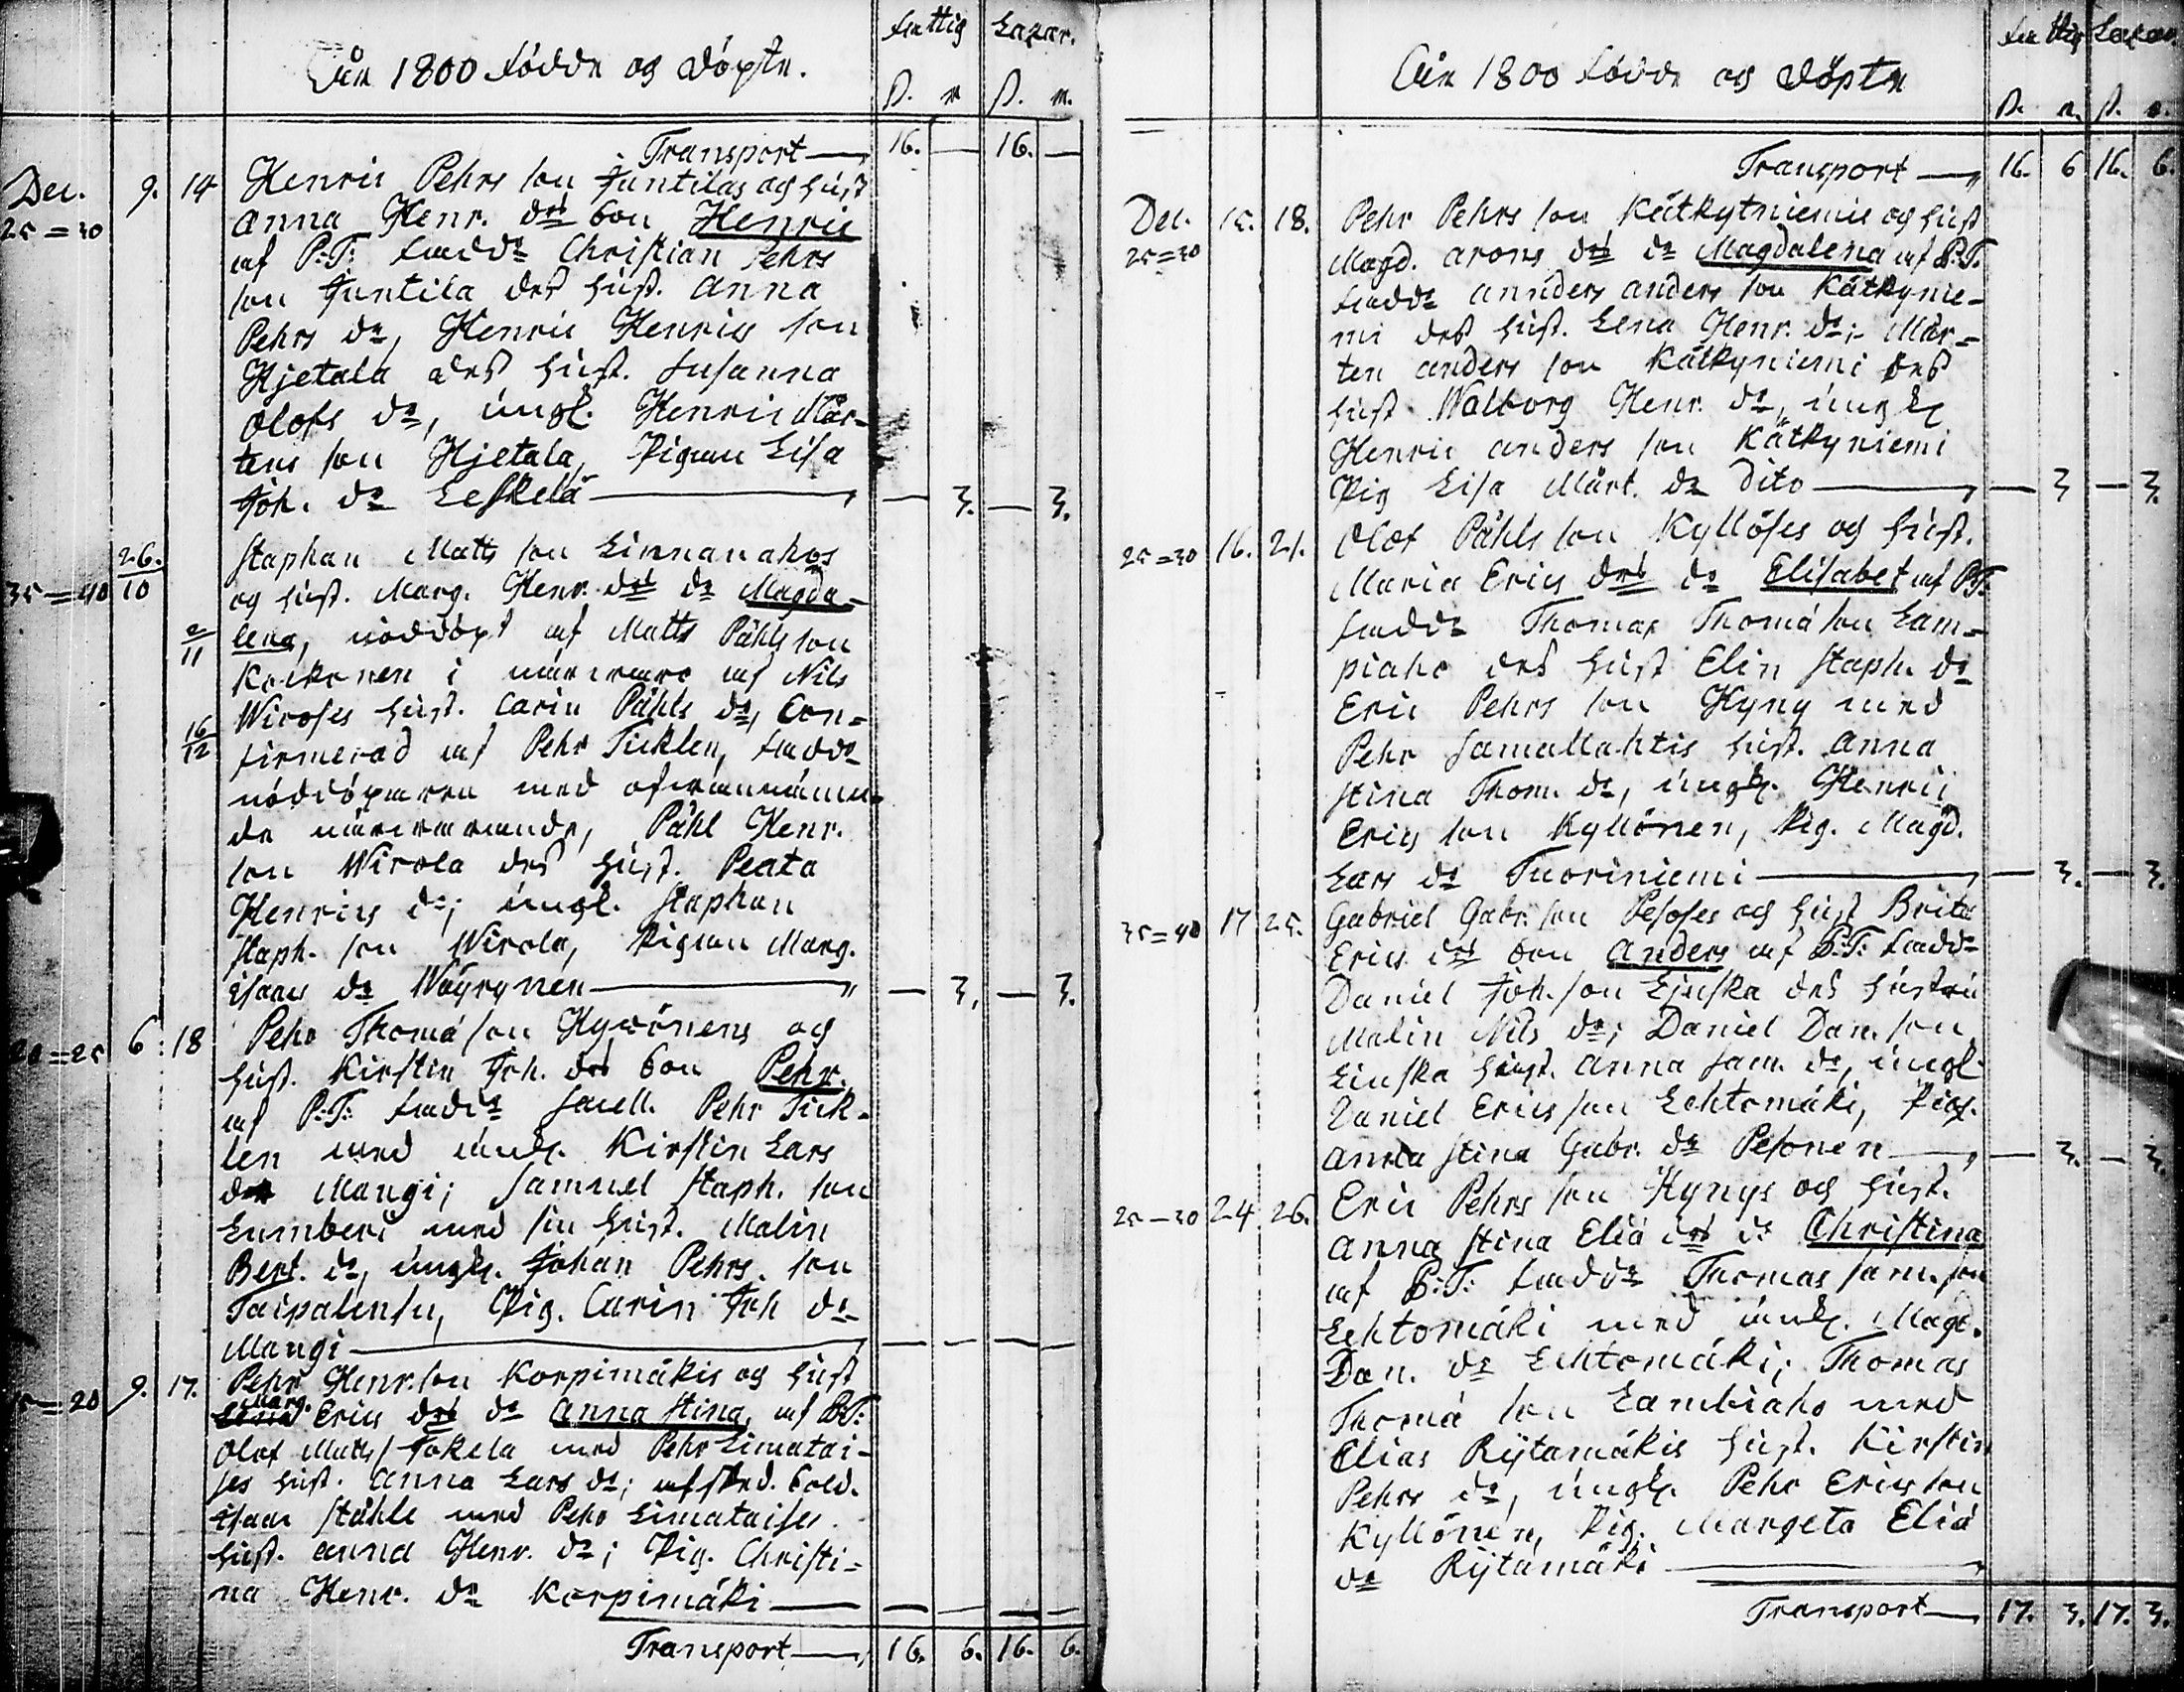 Fattig Lazar.
År 1800 födde og döpte.
ß. r ß. r.
Transport 16. — 16. —
Dec. 9. 14 Henric Pehrs son Juntilas og hust
25=30 Anna Henr. drs son Henric
af P:T: fadd: Christian Pehrs
son Juntila dess hust. Anna
Pehrs dr, Henric Henrics son
Hjetala dess hust. Susanna
Olofs dr, ungk. Henric Mår-
tens son Hjetala, Pigan Lisa
Joh. dr Leskelä — 3. — 3.
26./10 Staphan Matts son Linnanahos
35=40 og hust. Marg. Henr. drs dr Magda-
2/11 lena, nöddöpt af Matts Påhls son
Keikonen i närvaro af Nils
Wiroses hust. Carin Påhls dr, Con-
16/12 firmerad af Pehr Ticklen, fadd:
nöddöparen med ofvannämn-
de närvarande, Påhl Henr.
son Wirola dess hust. Beata
Henrics dr; ungk. Staphan
Staph. son Wirola, Pigan Marg.
Isaacs dr Wäyrynen — 3. — 3.
20=25 6. 18 Pehr Thomä son Hyvönens og
hust. Kirstin Joh. drs son Pehr.
af P:T: fadd: Pehr Tick-
len med enk. Kirstin Lars
dr Mangi; Samuel Staph. son
Lumberi med sin hust. Malin
Bert. dr, ungk. Johan Pehrs. son
Taipalensu, Pig. Carin Joh dr
Mangi — — — —
=20 9. 17. Pehr Henr. son Korpimäkis og hust
Marg. Erics drs dr Anna Stina, af P:T:
Olof Matts s Jokela med Pehr Limatai-
ses hust. Anna Lars dr; afsked. Sold.
Isaac Ståhle med Pehr Limataises
hust. Anna Henr. dr; Pig. Christi-
na Henr. dr Korpimäki — — — —
Transport 16. 6. 16. 6.
Fattig Lazar
År 1800 födde og döpte
ß. r. ß. r.
Transport 16. 6 16. 6.
Dec. 15. 18. Pehr Pehrs son Kätkytniemis og hust
25=30 Magd. Arons drs dr Magdalena af P:T.
fadd: Annders Anders son Kätkynie-
mi dess hust. Lena Henr. dr; Mår-
ten Anders son Kätkyniemi dess
hust. Walborg Henr. dr, ungk
Henric Anders son Kätkyniemi
Pig Lisa Mårt. dr Dito — 3 — 3.
25=30 16. 21. Olof Påhls son Kyllöses og hust.
Maria Erics drs dr Elisabet af P:T:
fadd: Thomas Thomä son Lam-
piaho dess hust Elin Staph. dr
Eric Pehrs son Hyny med
Pehr Samallahtis hust. Anna
Stina Thom. dr, ungk. Henric
Erics son Kyllönen, Pig. Magd.
Lars dr Tuoriniemi — 3. — 3.
35=40 17 25. Gabriel Gabr. son Pesoses og hust Brita
Erics drs son Anders af P:T: fadd:
Daniel Joh. son Linska dess hustru
Malin Nils dr; Daniel Dan. son
Linska hust. Anna Sam. dr, ungk
Daniel Erics son Lehtomäki, Pig.
Anna Stina Gabr. dr Pesonen — 3. — 3.
25=30 24. 26. Eric Pehrs son Hynys og hust.
Anna Stina Eliä drs dr Christina
af P:T: fadd: Thomas Sam. son
Lehtomäki med enk. Magd.
Dan. dr Lehtomäki; Thomas
Thomä son Lambiaho med
Elias Rÿtämäkis hust. Kirstin
Pehrs dr, ungk. Pehr Erics son
Kyllönen, Pig. Margeta Eliä
dr Rÿtämäki
Transport 17. 3. 17. 3.